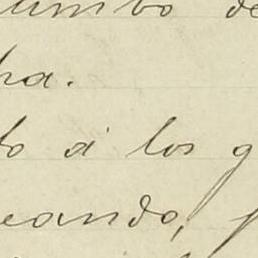 umbo de
ha.
do á los g
eando, p